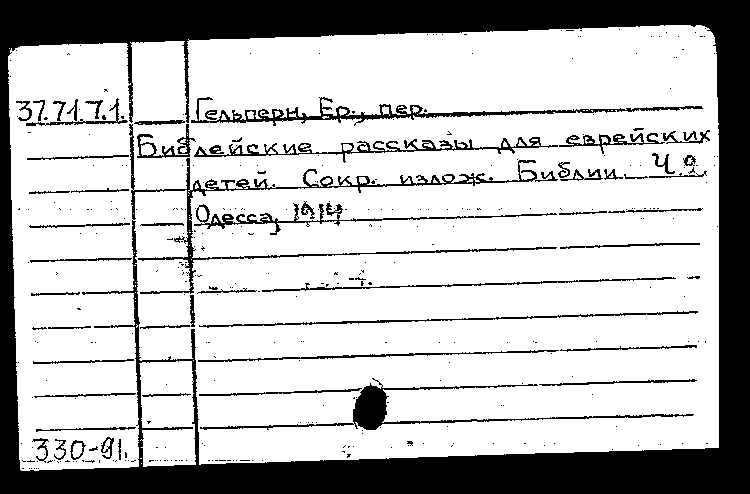 37.71.7.1. Гельперн, Ер., пер.
Библейские рассказы для еврейских
детей. Сокр. излож. Библии. Ч.2.
Одесса, 1914
330-91.